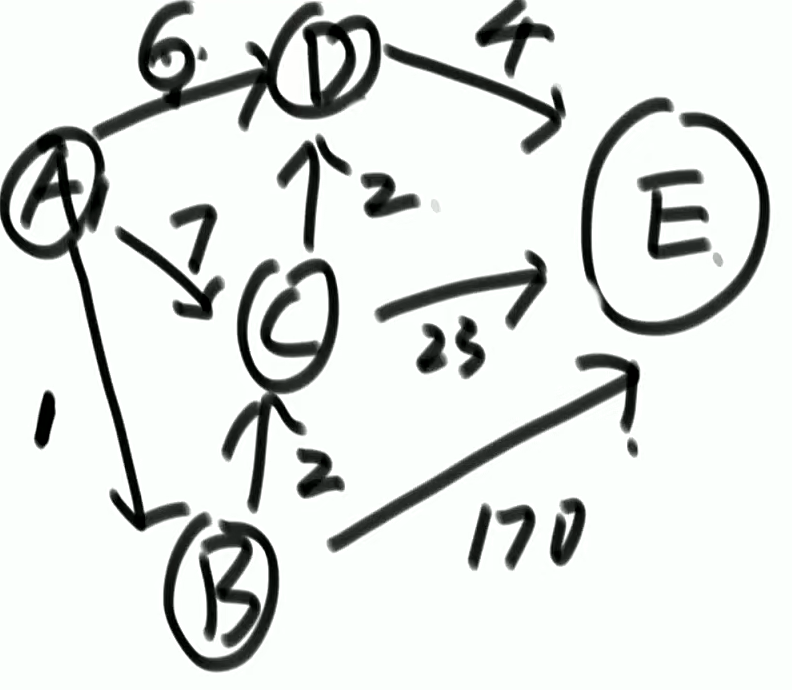 6
D
4
A
7
2
E
C
23
1
2
B
170